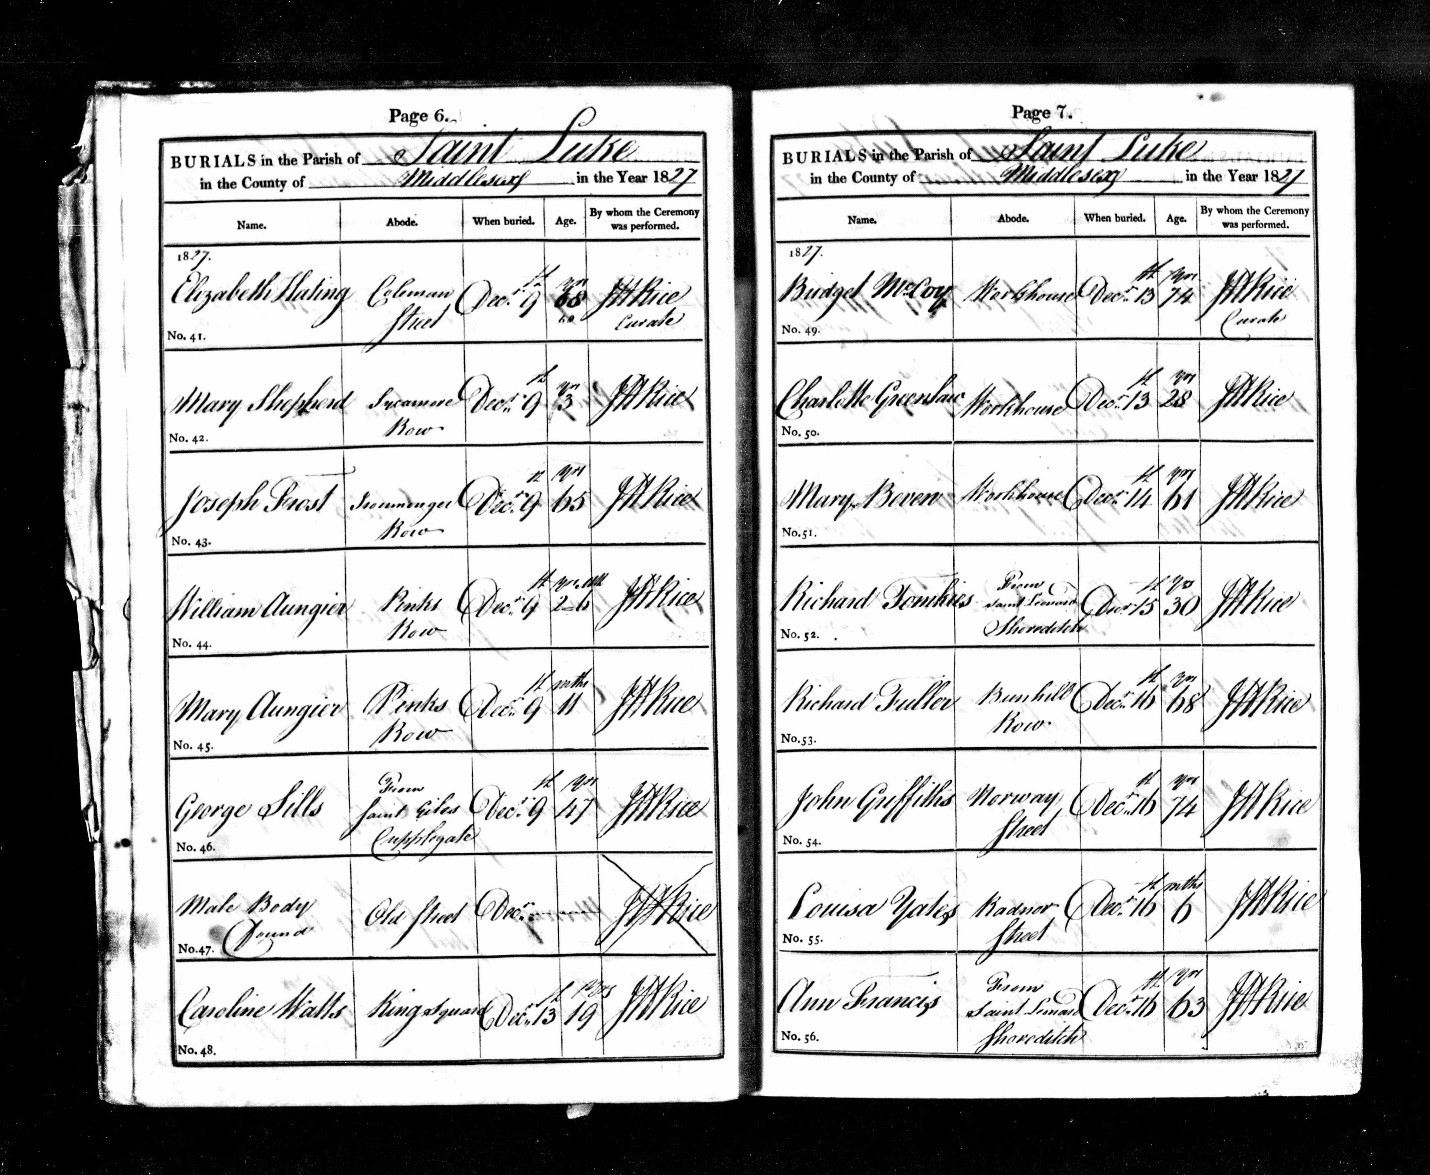 Page 6.
BURIALS in the Parish of Saint Luke
in the County of Middlesex in the Year 1827
Name. Abode. When buried. Age. By whom the Ceremony was performed.
1827.
Elizabeth Hating Coleman Street Decr. 9th 68 yrs JH Rice Curate
No. 41.
Mary Shepherd Sycamore Row Decr. 9th 3 yrs JH Rice
No. 42.
Joseph Frost Ironmonger Row Decr. 9th 65 yrs JH Rice
No. 43.
William Aungier Pinks Row Decr. 9th 2 yrs 6 Mth JH Rice
No. 44.
Mary Aungier Pinks Row Decr. 9th 11 mths JH Rice
No. 45.
George Sills From Saint Giles Cripplegate Decr. 9th 47 yrs JH Rice
No. 46.
Male Body Found Old Street Decr. JH Rice
No. 47.
Caroline Watts King Square Decr. 13th 19 yrs JH Rice
No. 48.
Page 7.
BURIALS in the Parish of Saint Luke
in the County of Middlesex in the Year 1827
Name. Abode. When buried. Age. By whom the Ceremony was performed.
1827.
Bridget McCoy Workhouse Decr. 13th 74 yrs JH Rice Curate
No. 49.
Charlotte Greenlaw Workhouse Decr. 13th 28 yrs JH Rice
No. 50.
Mary Beven Workhouse Decr. 14th 61 yrs JH Rice
No. 51.
Richard Tomkies From Saint Leonard Shoreditch Decr. 15th 30 yrs JH Rice
No. 52.
Richard Fuller Bunhill Row Decr. 16th 68 yrs JH Rice
No. 53.
John Griffiths Norway Street Decr. 16th 74 yrs JH Rice
No. 54.
Louisa Yates Radnor Street Decr. 16th 6 mths JH Rice
No. 55.
Ann Francis From Saint Leonard Shoreditch Decr. 16th 63 yrs JH Rice
No. 56.